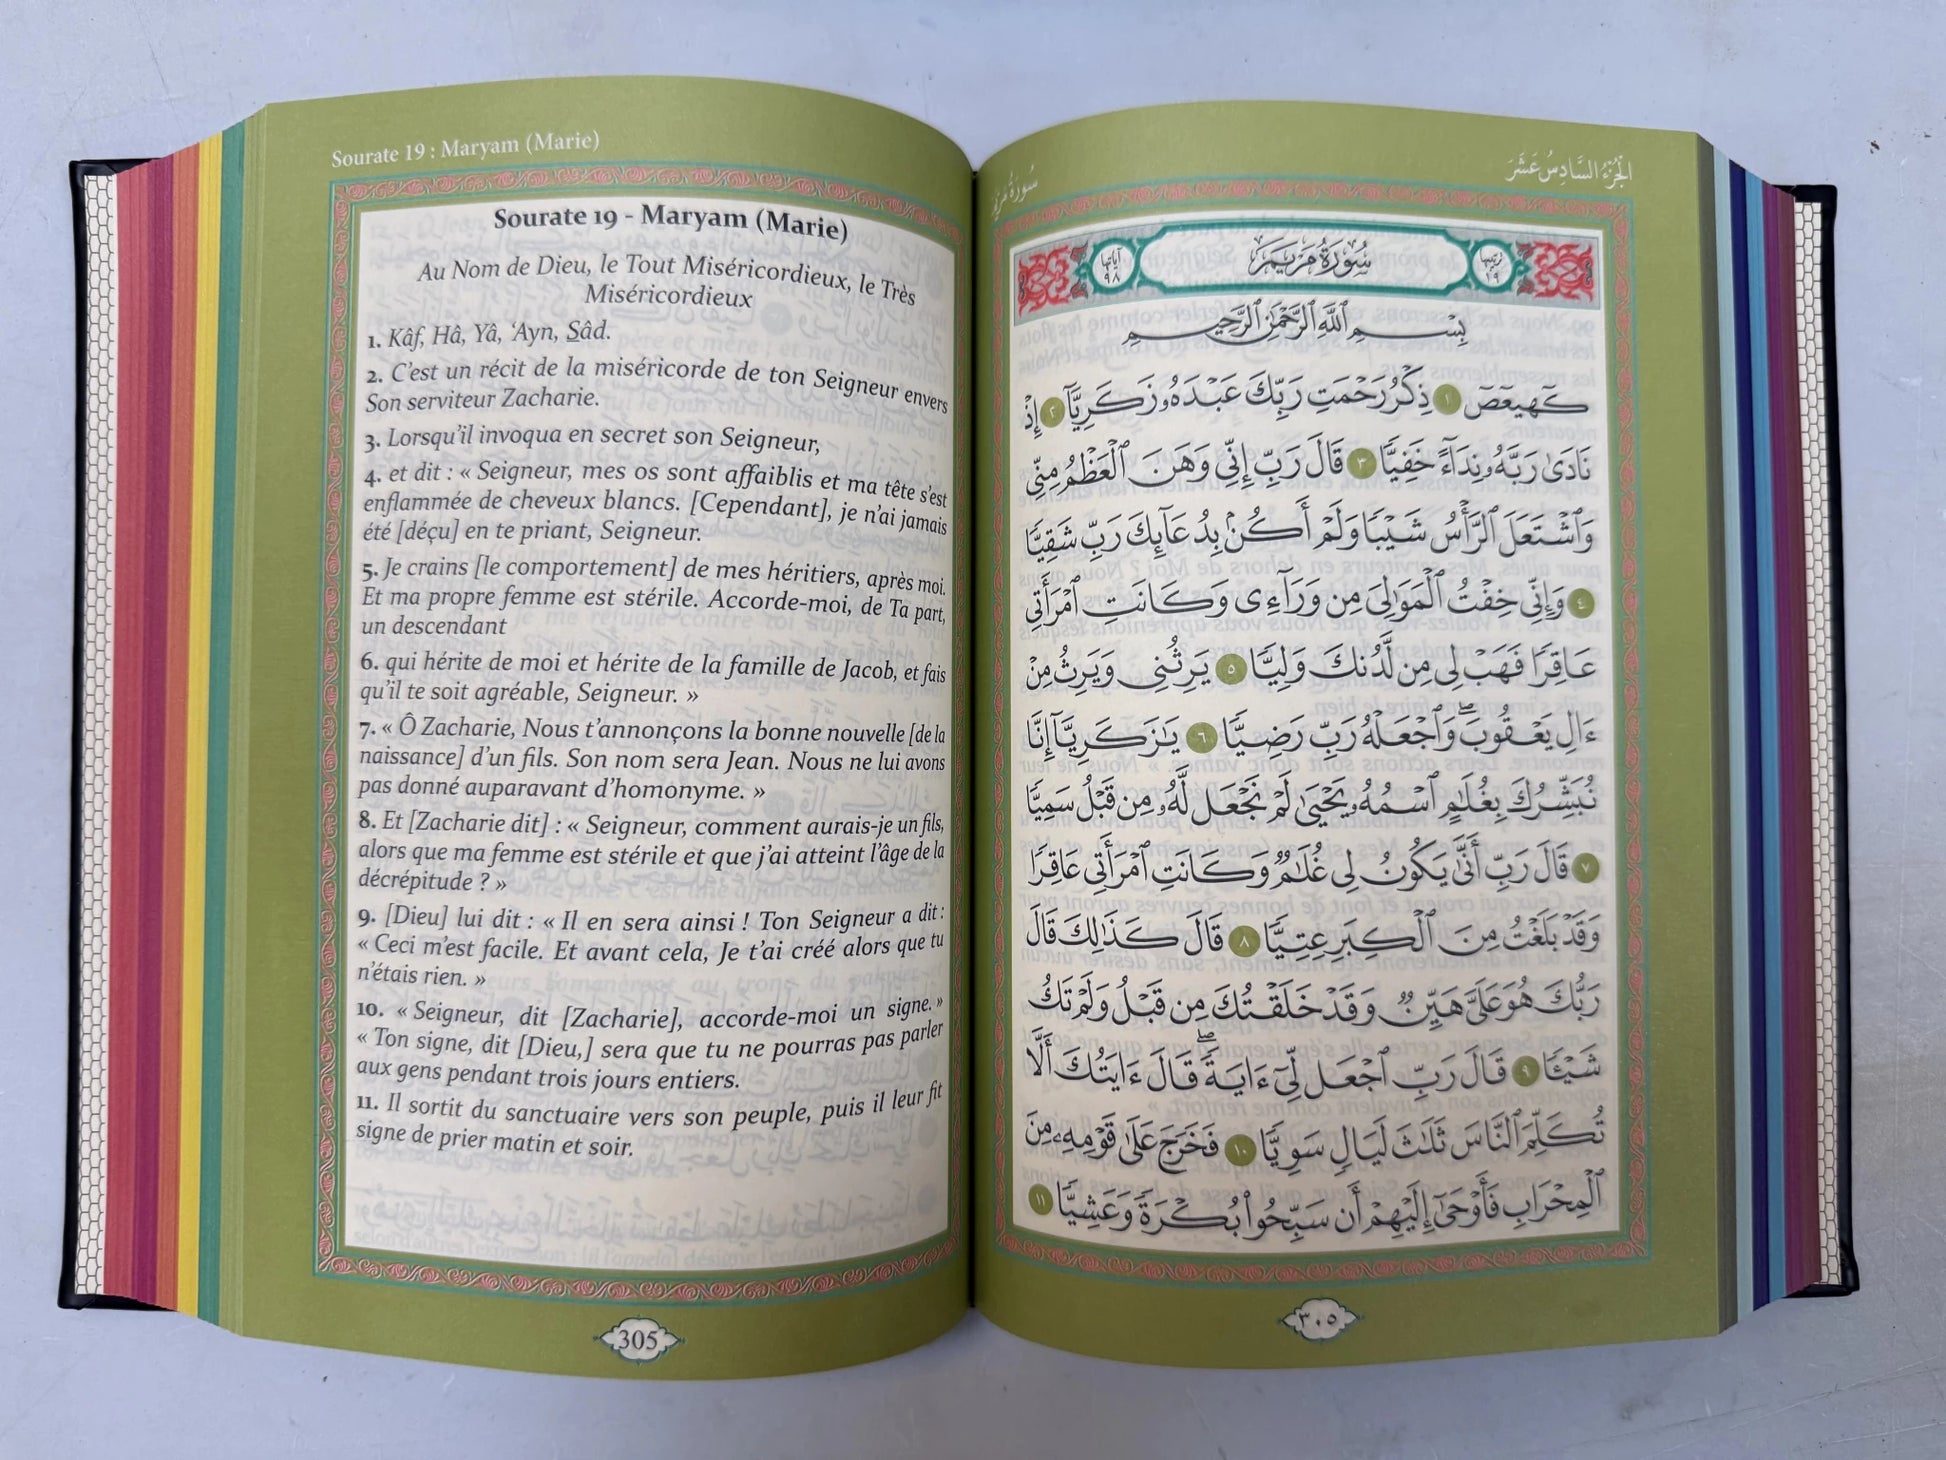 Sourate 19 : Maryam (Marie)
Sourate 19 - Maryam (Marie)
Au Nom de Dieu, le Tout Miséricordieux, le Très
Miséricordieux
1. Kâf, Hâ, Yâ, ‘Ayn, Sâd.
2. C’est un récit de la miséricorde de ton Seigneur envers
Son serviteur Zacharie.
3. Lorsqu’il invoqua en secret son Seigneur,
4. et dit : « Seigneur, mes os sont affaiblis et ma tête s’est
enflammée de cheveux blancs. [Cependant], je n’ai jamais
été [déçu] en te priant, Seigneur.
5. Je crains [le comportement] de mes héritiers, après moi.
Et ma propre femme est stérile. Accorde-moi, de Ta part,
un descendant
6. qui hérite de moi et hérite de la famille de Jacob, et fais
qu’il te soit agréable, Seigneur. »
7. « Ô Zacharie, Nous t’annonçons la bonne nouvelle [de la
naissance] d’un fils. Son nom sera Jean. Nous ne lui avons
pas donné auparavant d’homonyme. »
8. Et [Zacharie dit] : « Seigneur, comment aurais-je un fils,
alors que ma femme est stérile et que j’ai atteint l’âge de la
décrépitude ? »
9. [Dieu] lui dit : « Il en sera ainsi ! Ton Seigneur a dit :
« Ceci m’est facile. Et avant cela, Je t’ai créé alors que tu
n’étais rien. »
10. « Seigneur, dit [Zacharie], accorde-moi un signe. »
« Ton signe, dit [Dieu,] sera que tu ne pourras pas parler
aux gens pendant trois jours entiers.
11. Il sortit du sanctuaire vers son peuple, puis il leur fit
signe de prier matin et soir.
305
الجُزْءُ السَّادِسُ عَشَرَ
سُورَةُ مَرْيَم
ترتيبها ١٩
سُورَةُ مَرْيَمَ
آياتها ٩٨
بِسْمِ ٱللَّهِ ٱلرَّحْمَٰنِ ٱلرَّحِيمِ
كٓهيعٓصٓ ١ ذِكْرُ رَحْمَتِ رَبِّكَ عَبْدَهُۥ زَكَرِيَّآ ٢ إِذْ
نَادَىٰ رَبَّهُۥ نِدَآءً خَفِيًّا ٣ قَالَ رَبِّ إِنِّى وَهَنَ ٱلْعَظْمُ مِنِّى
وَٱشْتَعَلَ ٱلرَّأْسُ شَيْبًا وَلَمْ أَكُنۢ بِدُعَآئِكَ رَبِّ شَقِيًّا
٤ وَإِنِّى خِفْتُ ٱلْمَوَٰلِىَ مِن وَرَآءِى وَكَانَتِ ٱمْرَأَتِى
عَاقِرًا فَهَبْ لِى مِن لَّدُنكَ وَلِيًّا ٥ يَرِثُنِى وَيَرِثُ مِنْ
ءَالِ يَعْقُوبَ ۖ وَٱجْعَلْهُ رَبِّ رَضِيًّا ٦ يَٰزَكَرِيَّآ إِنَّا
نُبَشِّرُكَ بِغُلَٰمٍ ٱسْمُهُۥ يَحْيَىٰ لَمْ نَجْعَل لَّهُۥ مِن قَبْلُ سَمِيًّا
٧ قَالَ رَبِّ أَنَّىٰ يَكُونُ لِى غُلَٰمٌ وَكَانَتِ ٱمْرَأَتِى عَاقِرًا
وَقَدْ بَلَغْتُ مِنَ ٱلْكِبَرِ عِتِيًّا ٨ قَالَ كَذَٰلِكَ قَالَ
رَبُّكَ هُوَ عَلَىَّ هَيِّنٌ وَقَدْ خَلَقْتُكَ مِن قَبْلُ وَلَمْ تَكُ
شَيْـًٔا ٩ قَالَ رَبِّ ٱجْعَل لِّىٓ ءَايَةً ۚ قَالَ ءَايَتُكَ أَلَّا
تُكَلِّمَ ٱلنَّاسَ ثَلَٰثَ لَيَالٍ سَوِيًّا ١٠ فَخَرَجَ عَلَىٰ قَوْمِهِۦ مِنَ
ٱلْمِحْرَابِ فَأَوْحَىٰٓ إِلَيْهِمْ أَن سَبِّحُوا۟ بُكْرَةً وَعَشِيًّا ١١
٣٠٥